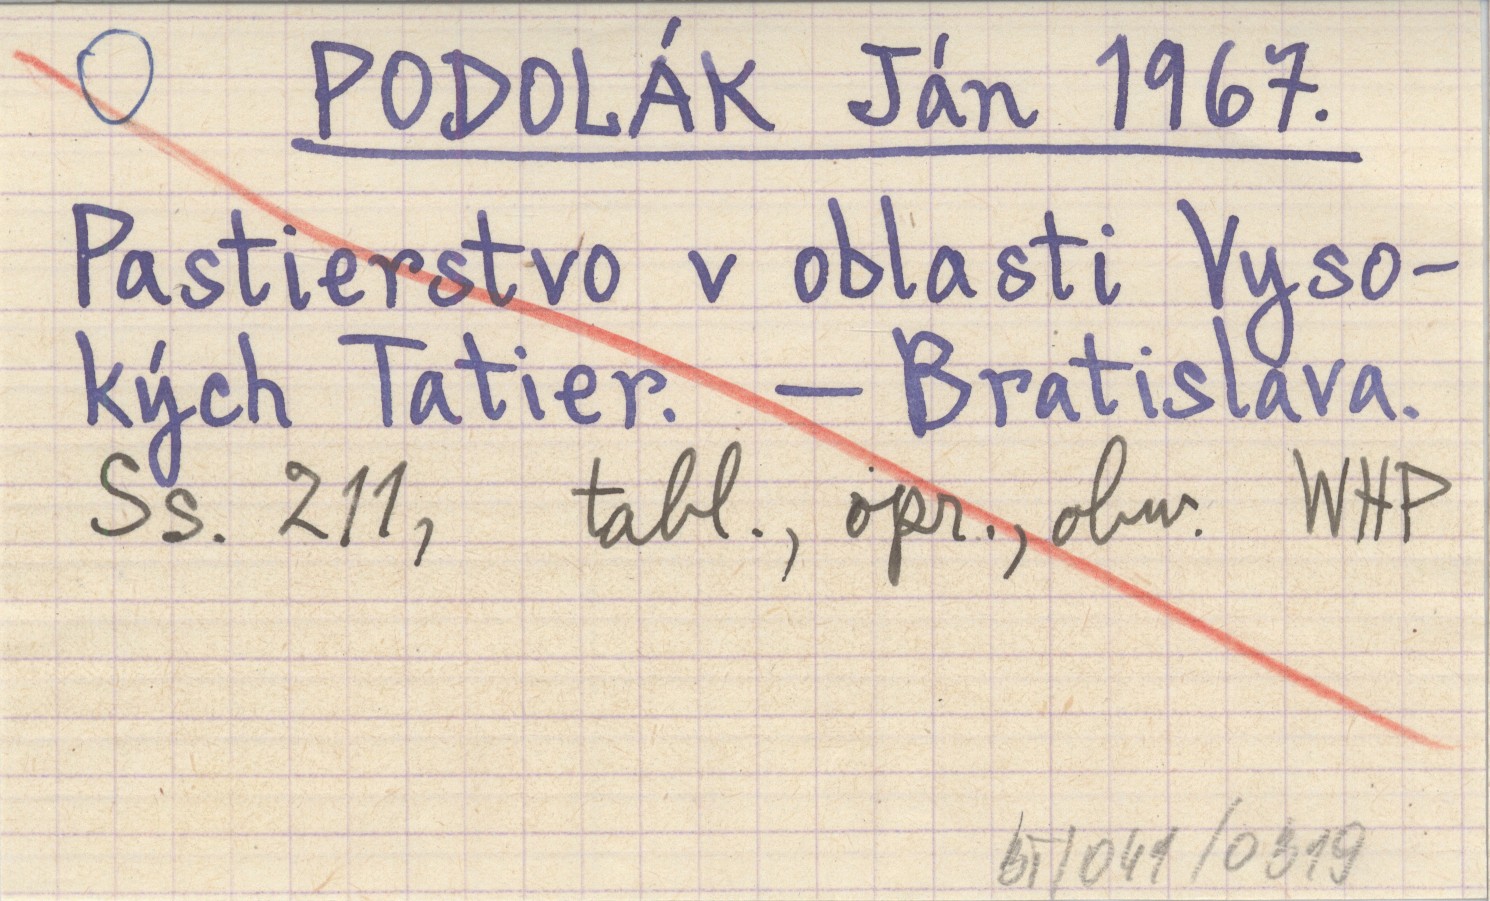 PODOLÁK Ján 1967.
Pastierstvo v oblasti Vyso-
kých Tatier. — Bratislava.
Ss. 211, tabl., opr., obw. WHP
bT/041/0319